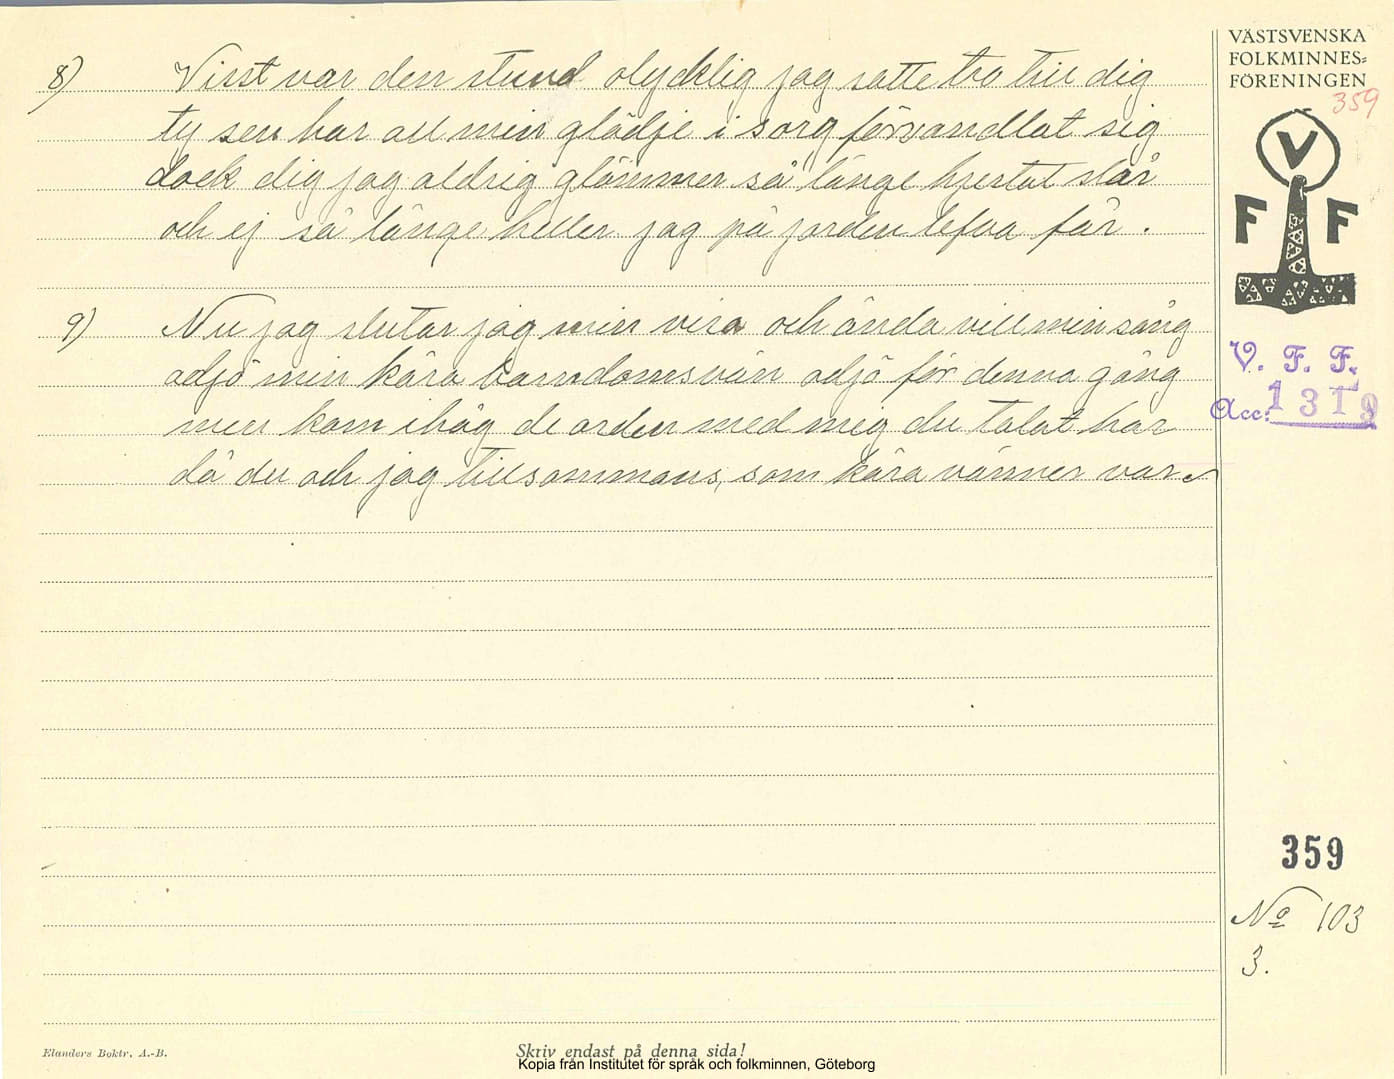 8) Visst var den stund olycklig jag satte tro till dig
ty sen har all min glädje i sorg förvandlat sig
dock dig jag aldrig glömmer så länge hjertat slår
och ej så länge heller jag på jorden lefva får.
9) Nu jag slutar jag min visa och ända vill min sång
adjö min kära barndomsvän adjö för denna gång
men kom ihåg de orden med mig du talat har
då du och jag tillsammans, som kära vänner var
VÄSTSVENSKA
FOLKMINNES-
FÖRENINGEN
359
V
F F
V. F. F.
Acc: 1319
359
No 103
3.
Elanders Boktr. A.-B.
Skriv endast på denna sida!
Kopia från Institutet för språk och folkminnen, Göteborg